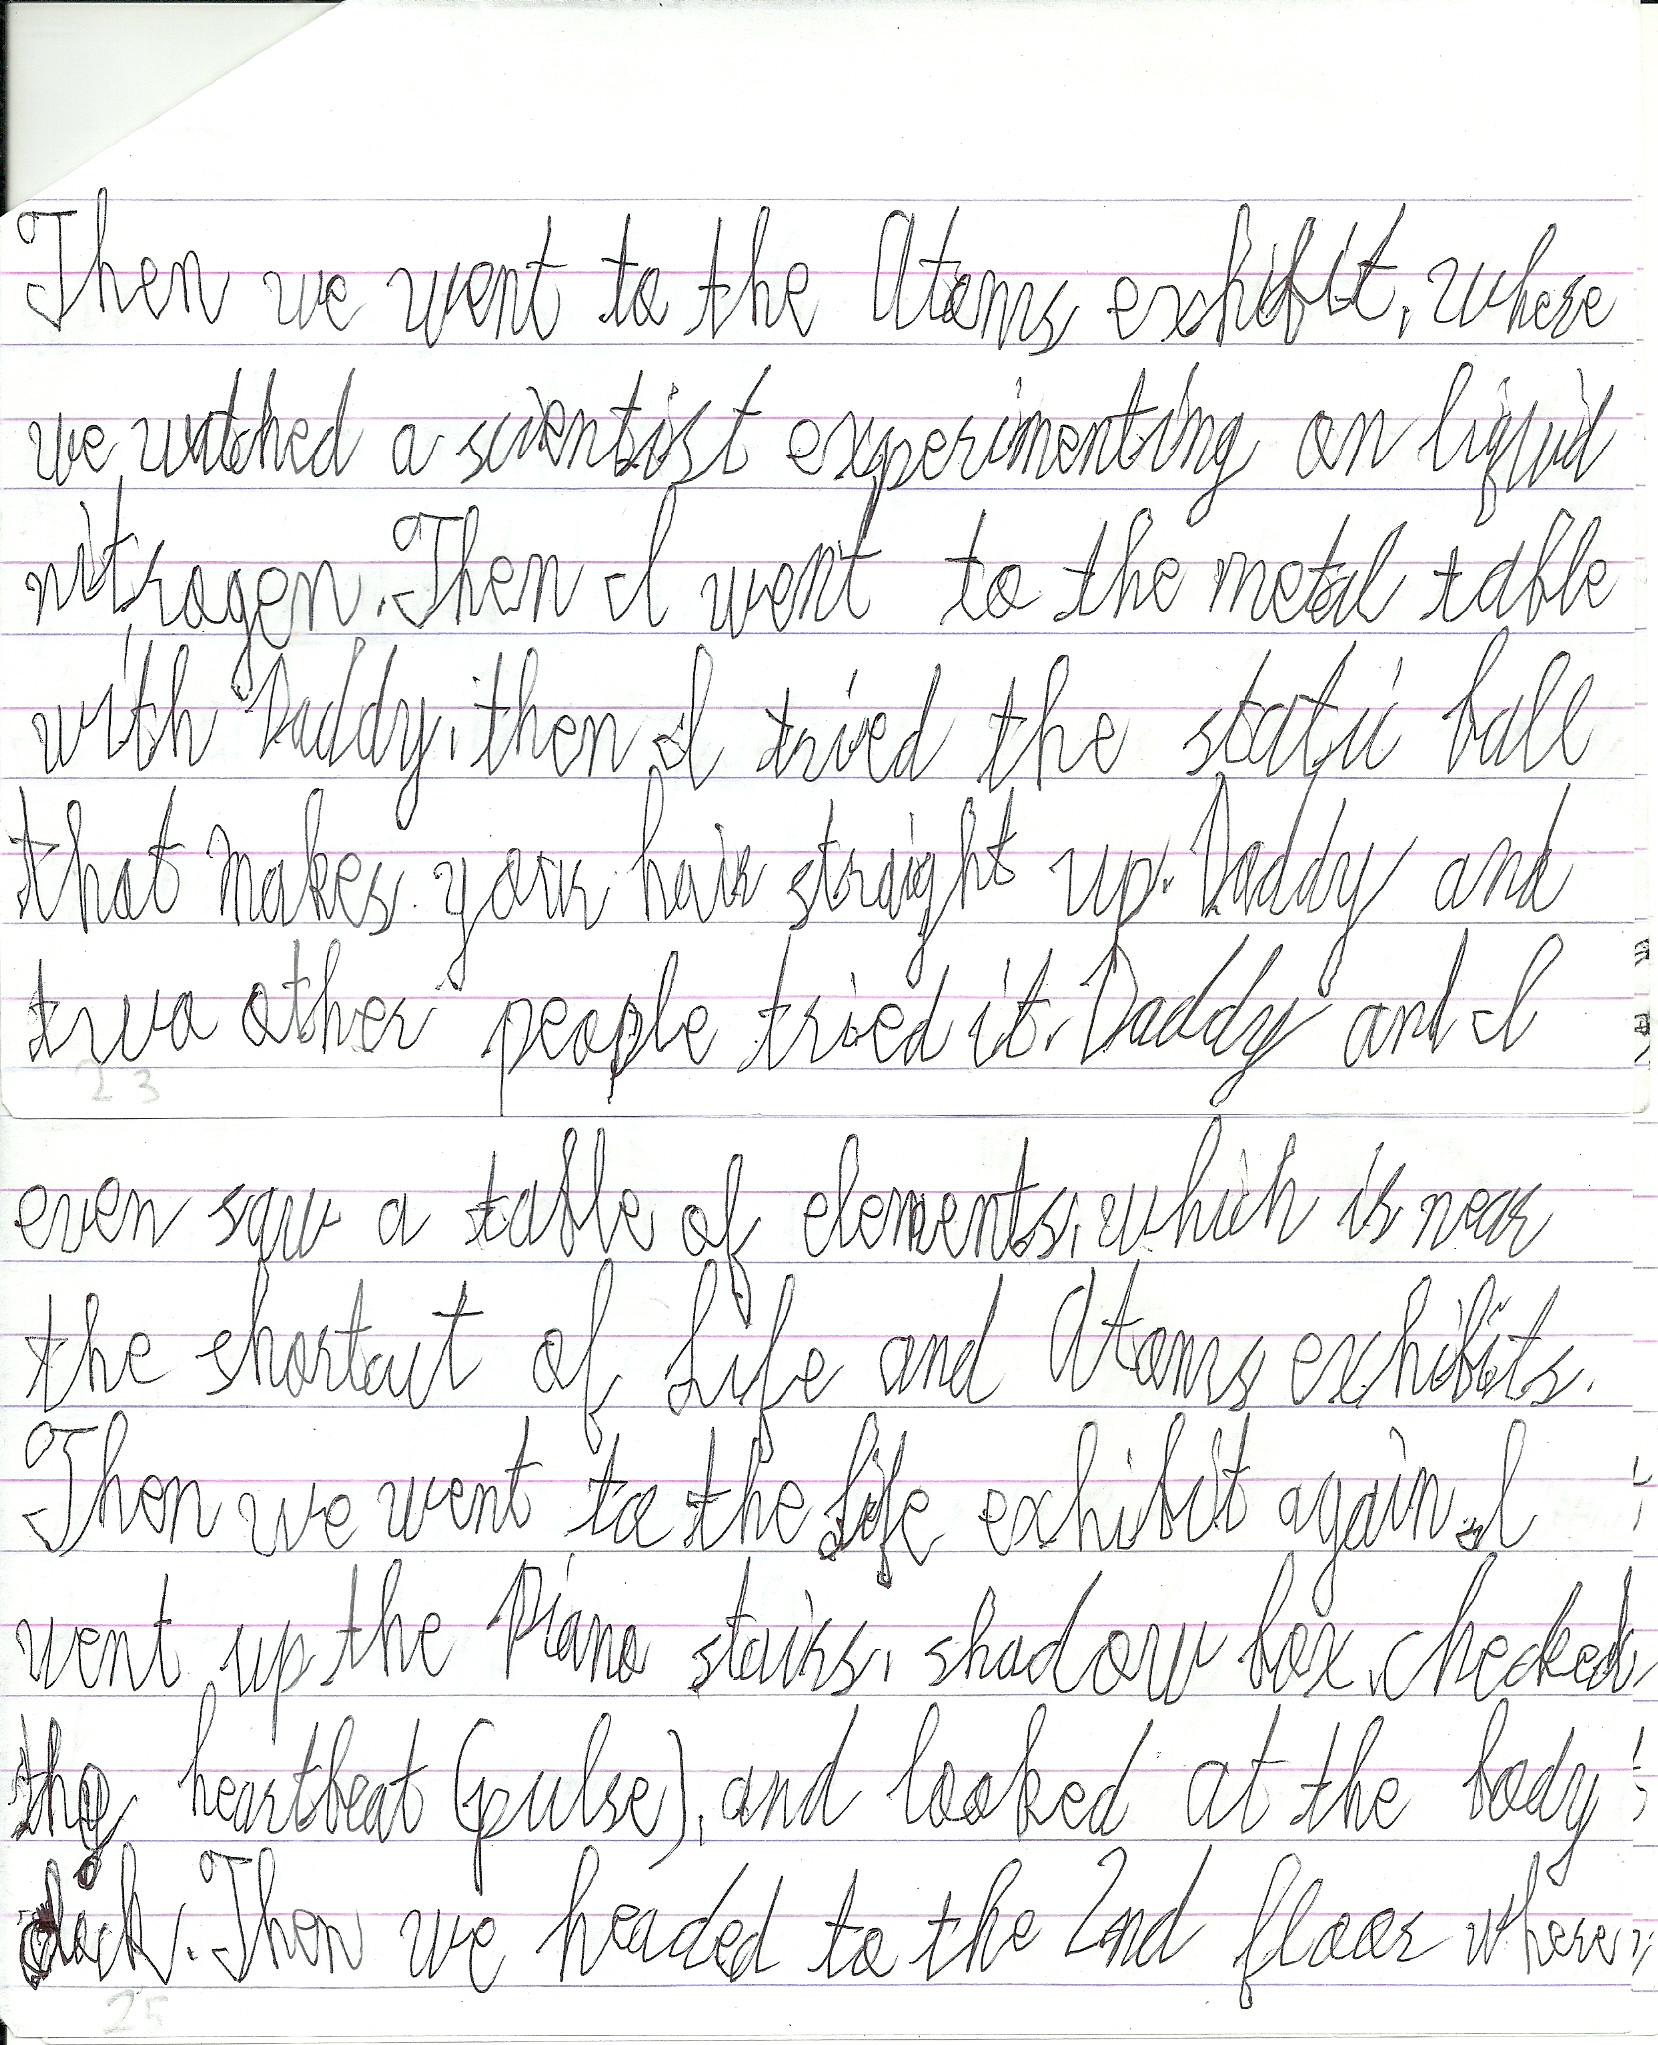 Then we went to the Atoms exhibit, where
we watched a scientist experimenting on liquid
nitrogen. Then I went to the metal table
with Daddy, then I tried the static ball
that makes your hair straight up. Daddy and
two other people tried it. Daddy and I
23
even saw a table of elements, which is near
the shortcut of Life and Atoms exhibits.
Then we went to the Life exhibit again. I
went up the Piano stairs, shadow box, checked
the heartbeat (pulse), and looked at the body
clock. Then we headed to the 2nd floor where
25